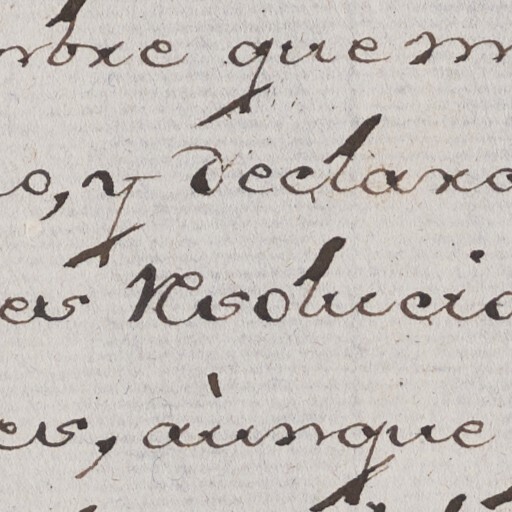 mbre que m
o, y declaro
es Resolucio
es, àunque